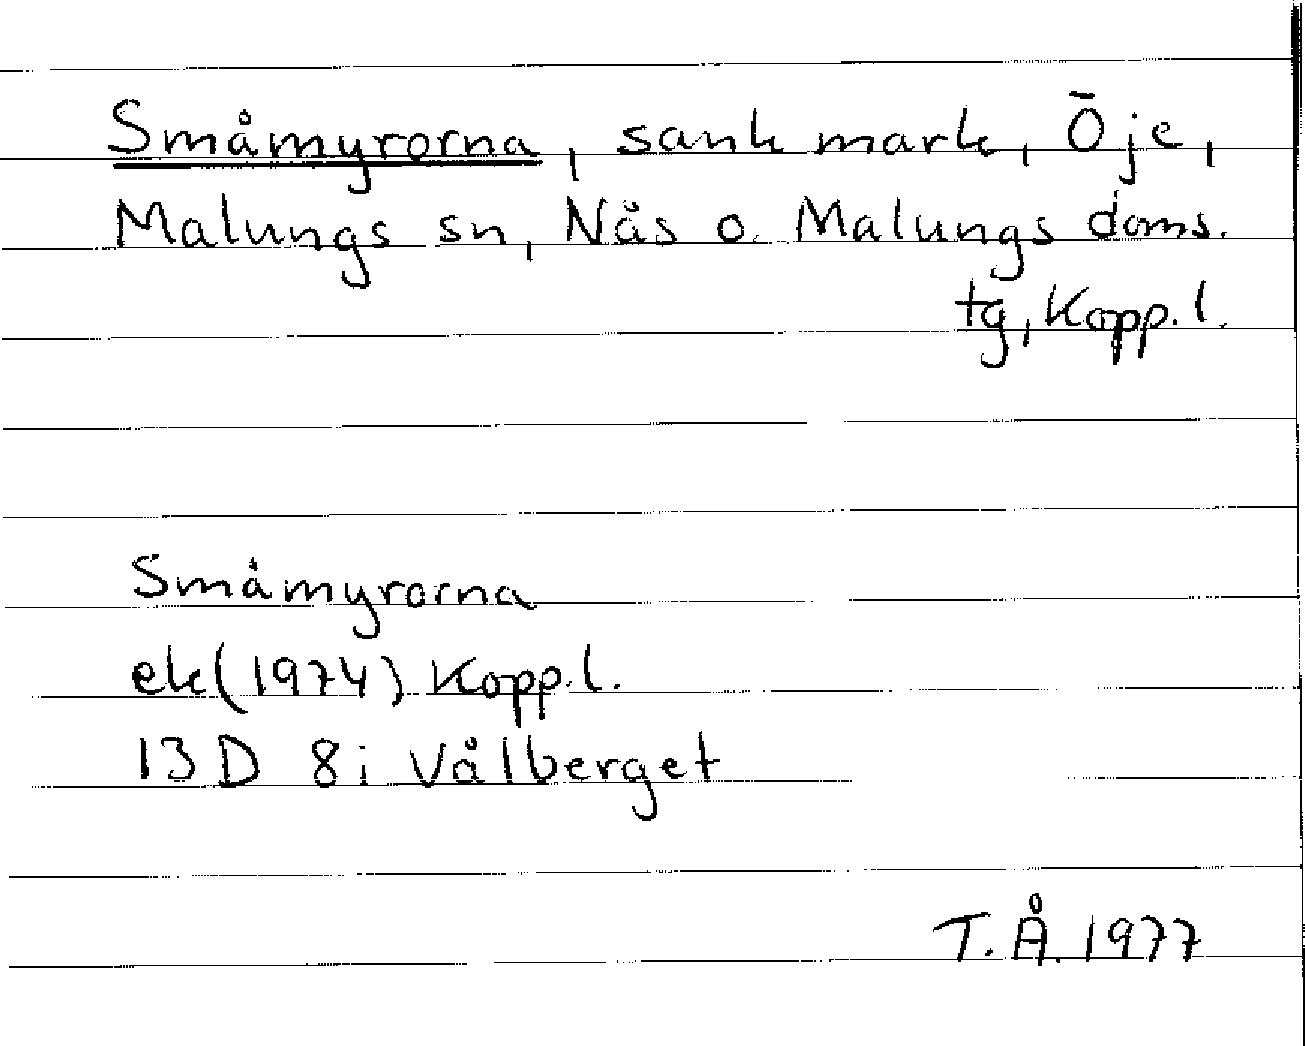 Småmyrorna, sank mark, Öje,
Malungs sn, Nås o. Malungs doms.
tg, Kopp. l.
Småmyrorna
ek (1974) Kopp. l.
13 D 8i Vålberget
T. Å. 1977